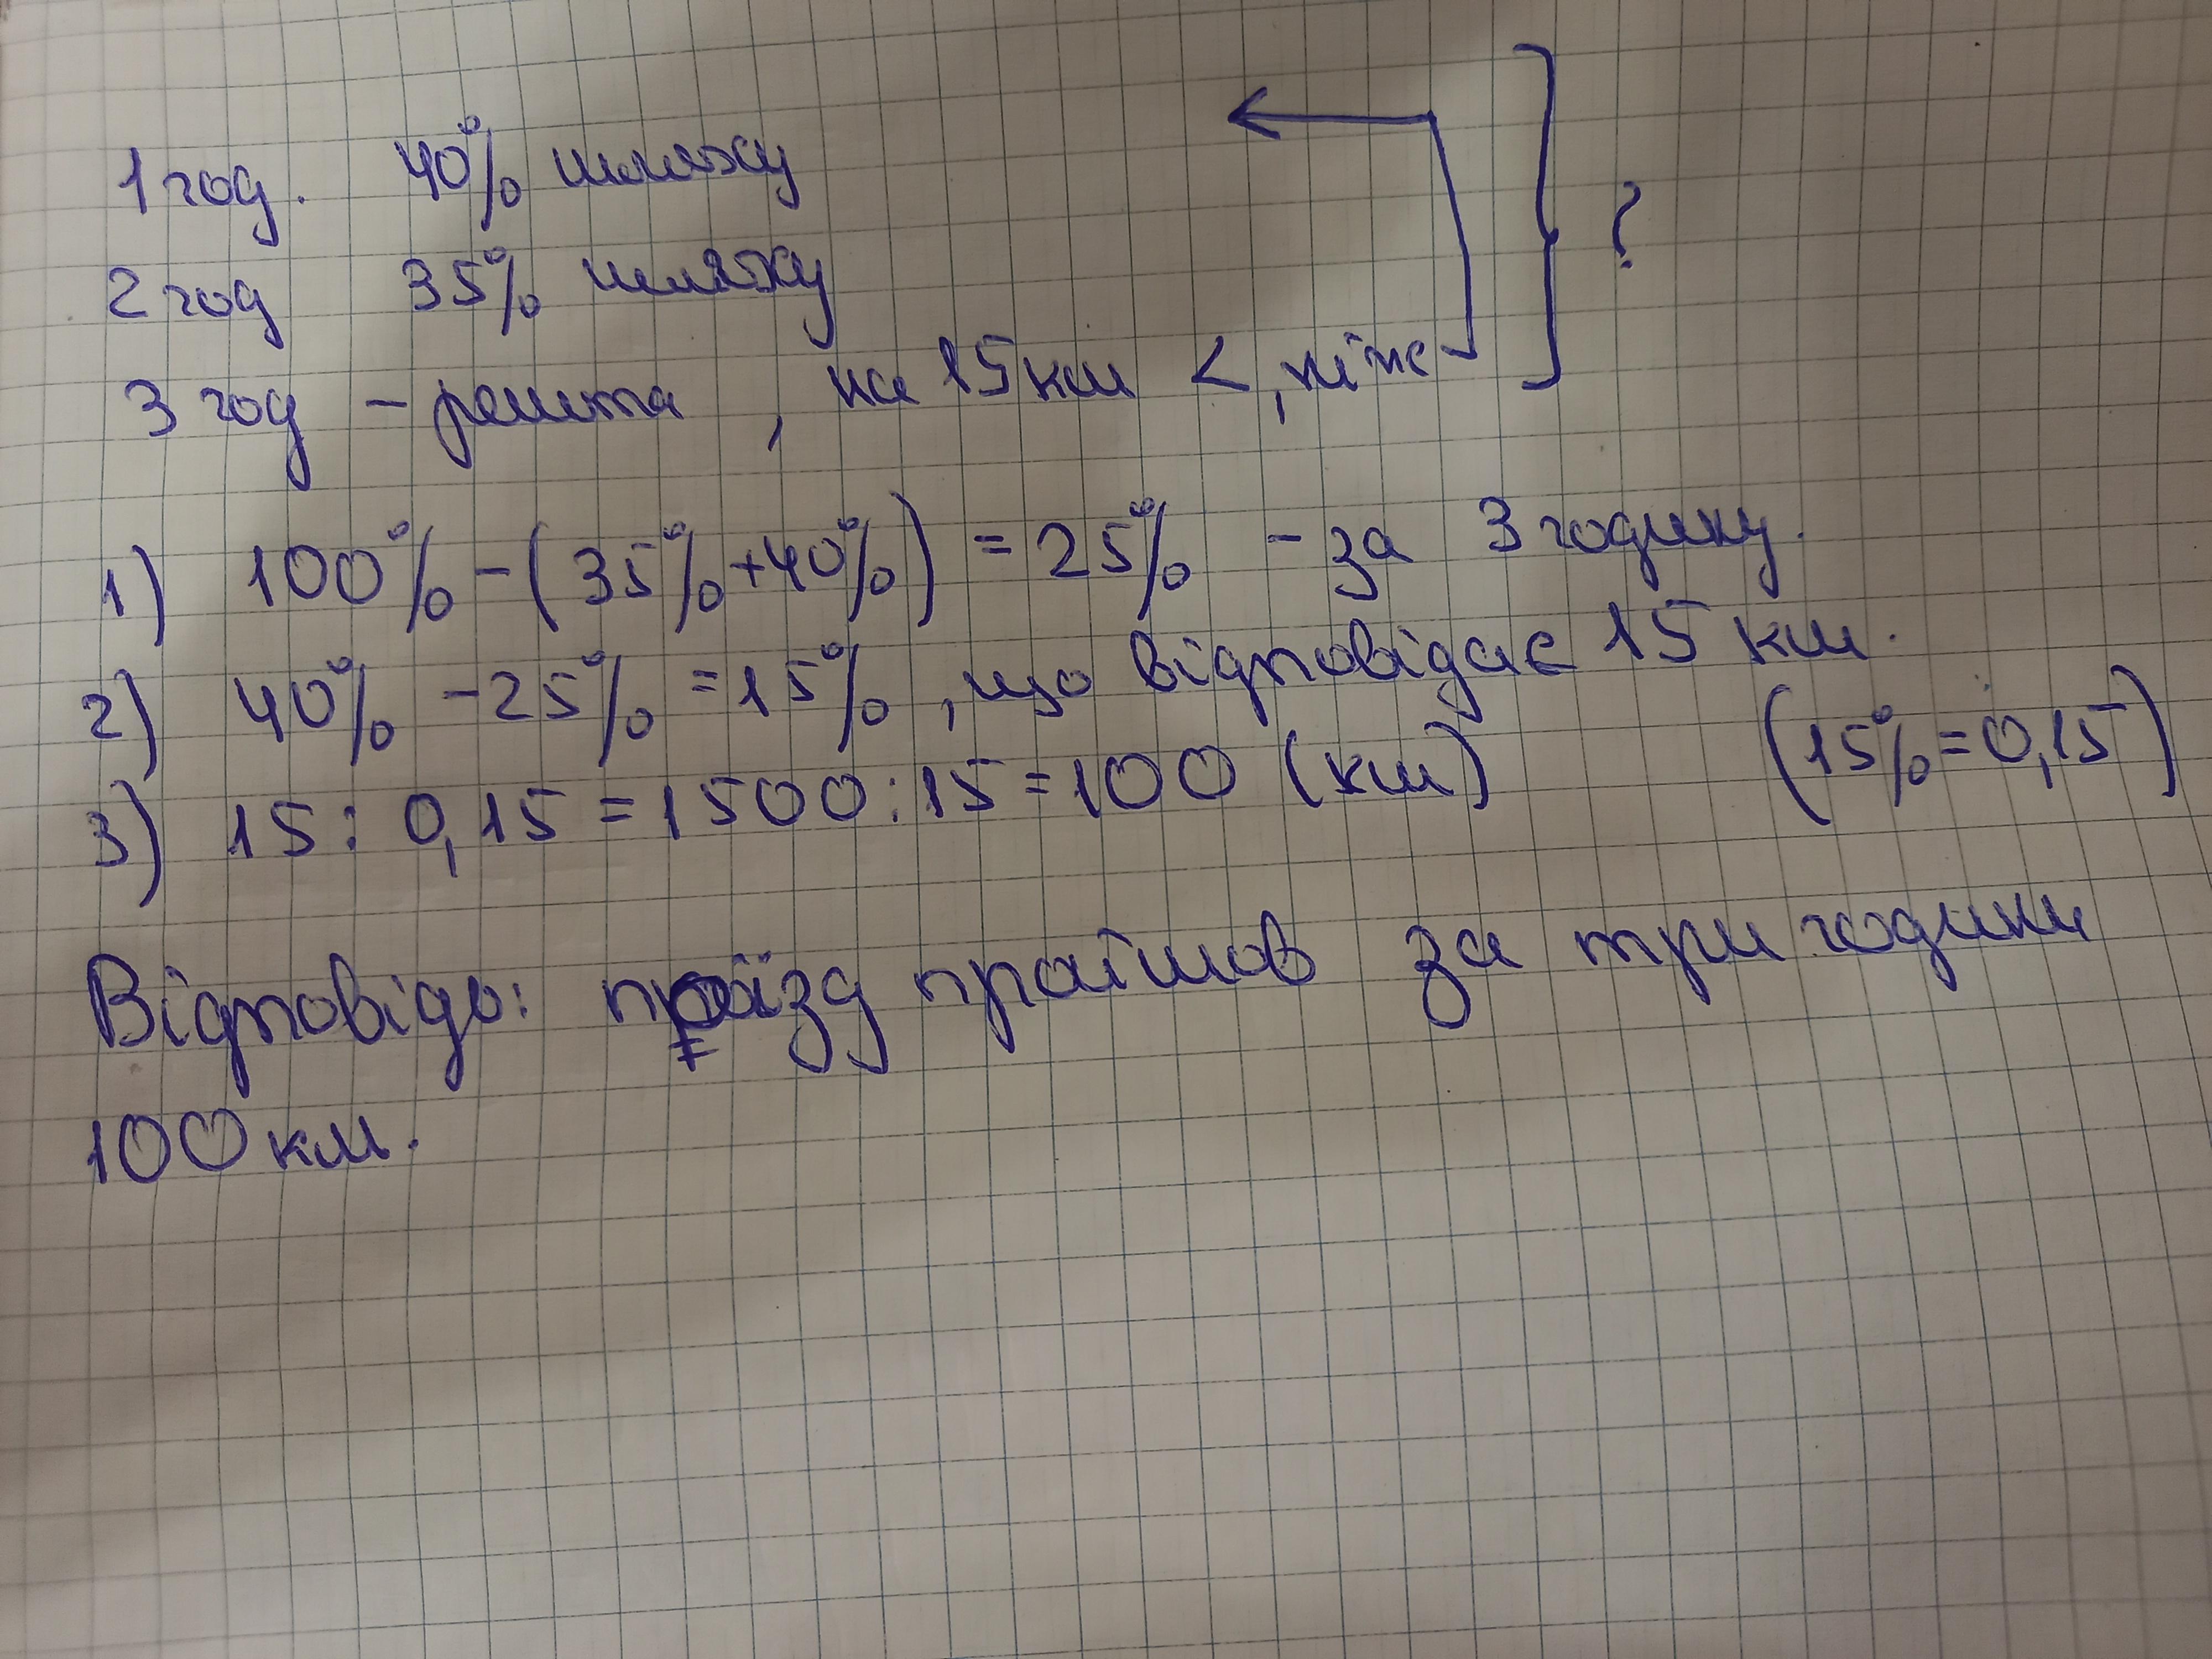 1 год. 40% шляху
2 год 35% шляху
3 год - решта , на 15 км < , ніж
?
1) 100% - (35% + 40%) = 25% - за 3 годину.
2) 40% - 25% = 15% , що відповідає 15 км.
3) 15 : 0,15 = 1500 : 15 = 100 (км) (15% = 0,15)
Відповідь: поїзд пройшов за три години
100 км.